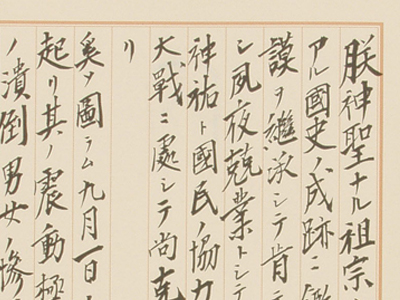 朕神聖ナル祖宗
アル國史ノ成跡ニ鑑
謨ヲ繼承シテ肯テ
シ夙夜兢業トシテ
神祐ト國民ノ協力
大戰ニ處シテ尚克
リ
奚ソ圖ラム九月一日ノ
起リ其ノ震動極
ノ潰倒男女ノ慘